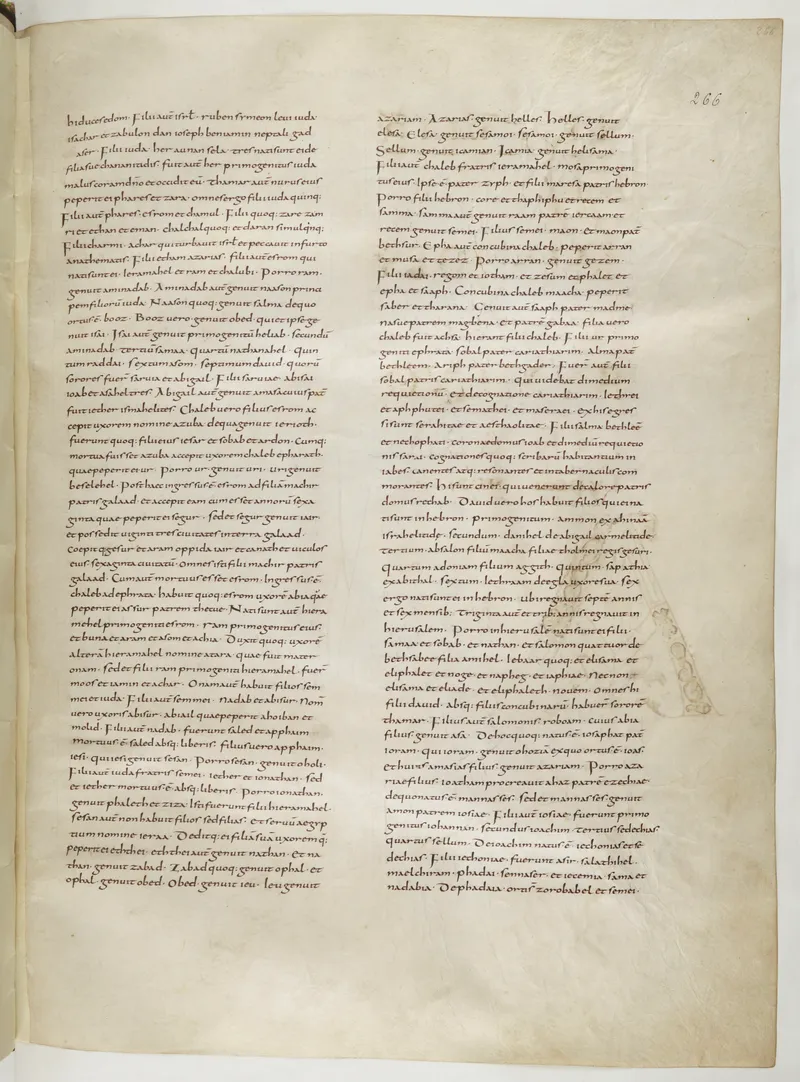 266
hi duces edom · Filii aut̄ isrł · ruben symeon leui iuda
isachar et zabulon dan ioseph beniamin neptali gad
aser · Filii iuda · her aunan sela · tres nati sunt ei de
filia sue chananitidis · fuit aut̄ her primogenitus iuda
malus coram dn̄o et occidit eū · Thamar aut̄ nurus eius
peperit ei phares et zara · omnes ergo filii iuda quinq;
Filii aut̄ phares · esrom et chamul · Filii quoq; zare zam
ri et ethan et eman · chalchal quoq; et daran simul quinq;
Filii charmi · Achar qui turbauit isrł et peccauit in furto
anathematis · Filii ethan azarias · filii aut̄ esrom qui
nati sunt ei · Ieramahel et ram et chalubi · Porro ram ·
genuit aminadab · Aminadab aut̄ genuit naason princi
pem filiorū iuda · Naason quoq; genuit salma de quo
ortus ē booz · Booz uero genuit obed · qui et ipse ge
nuit isai · Isai aut̄ genuit primogenitū heliab · secundū
aminadab · tertiū samaa · quartū nathanahel · quin
tum raddai · sextum asom · septimum dauid · quorū
sorores fuer̄ saruia et abigail · Filii saruiae · abisai
ioab et asahel tres · Abigail aut̄ genuit amasa cuius pat̄
fuit iether ismahelites · Chaleb uero filius esrom ac
cepit uxorem nomine azuba · de qua genuit ierioth ·
fueruntq̄uoq; filii eius iesar et sobab et ardon · Cumq;
mortua fuisset azuba accepit uxorem chaleb epharath ·
quae peperit ei ur · Porro ur · genuit uri · Uri genuit
beselehel · Post haec ingressus ē esrom ad filiā machir
patris galaad · et accepit eam cum esset annorū sexa
ginta quae peperit ei segur · sed et segur genuit iair ·
et possedit uiginti tres ciuitates in terra galaad ·
coepitq; gesur et aram oppida iair et canath et uiculos
eius sexaginta ciuitatū · Omnes isti filii machir patris
galaad · Cum aut̄ mortuus esset esrom · ingressus ē
chaleb ad ephrata · habuit quoq; esrom uxorē abia quae
peperit ei assur patrem thecue · Nati sunt aut̄ hiera
mehel primogeniti esrom · ram primogenitus eius ·
et buna et aram et asom et achia · Duxit quoq; uxorē
alterā hieramahel nomine atara · quae fuit mater
onam · sed et filii ram primogeniti hieramahel · fuer̄
moos et iamin et achar · Onam aut̄ habuit filios sem
mei et iuda · Filii aut̄ semmei · Nadab et abisur · Nom̄
uero uxoris abisur · abiail quae peperit ahobban et
molid · Filii aut̄ nadab · fuerunt saled et apphaim
mortuus ē saled absq; liberis · filius uero apphaim ·
iesi · qui iesi genuit sesan · Porro sesan · genuit oholi ·
Filii aut̄ iuda fratris semei · iether et ionathan · sed
et iether mortuus ē absq; liberis · Porro ionathan ·
genuit phaleth et ziza · Isti fuerunt filii hieramahel ·
sesan aut̄ non habuit filios sed filias · et seruū aegyp
tium nomine ieraa · Deditq; ei filiā suā uxorem q;
peperit ei ethei · eththei aut̄ genuit nathan · et na
than · genuit zabad · Zabad quoq; genuit ophal · et
ophal · genuit obed · Obed · genuit ieu · Ieu genuit
azariam · Azarias genuit helles · Helles · genuit
elesa · Elesa · genuit sesamoi · sesamoi · genuit sellum ·
Sellum · genuit icamian · Icamia · genuit helisama ·
Filii aut̄ chaleb fratris ieramahel · mosa primogeni
tus eius · Ipse ē pater zyph · et filii maresa patris hebron ·
Porro filii hebron · core et thaphphu et recem et
samma · samma aut̄ genuit raam patrē iercaam et
recem genuit semei · Filius semei · maon · et maon pat̄
bethsur · Epha aut̄ concubina chaleb · peperit arran
et musa et gezez · Porro arran · genuit gezem ·
Filii iadai · regom et iotham · et zesum et phalet et
epha et saaph · Concubina chaleb maacha · peperit
saber et tharana · Genuit aut̄ saaph pater madme
nas sue patrem magbena · et patrē gabaa · filia uero
chaleb fuit achsa · hi erant filii chaleb · Filii ur primo
geniti ephrata · sobal pater cariathiarim · Alma pat̄
bethleem · Ariph pater bethgader · Fuer̄ aut̄ filii
sobal patris cariathiarim · qui uidebat dimidium
requietionū · et de cognatione cariathiarim · iethrei
et aphphutei · et semathei · et maserei · ex his egres
si sunt serahitae et aesthaolitae · Filii salma bethleē
et nethophati · coronae domus ioab et dimidiū requietio
nis sarai · cognationes quoq; scribarū habitantium in
iabes · canentes atq; resonantes et in tabernaculis com
morantes · Hi sunt cinei · qui uenerunt de calore patris
domus rechab · Dauid uero hos habuit filios qui ei na
ti sunt in hebron · primogenitum · ammon ex ahinaā
israhelitide · secundum · danihel de abigail carmelitide ·
tertium · absalon filiū maacha filiae tholmei regis gesuri ·
quartum adoniam filium aggith · quintum · saphathia
ex abithal · sextum · iethraam de egla uxore sua · sex
ergo nati sunt ei in hebron · ubi regnauit septē annis
et sex mensib; Triginta aut̄ et trib; annis regnauit in
hierusalem · Porro in hierusalē nati sunt ei filii ·
samaa et sobab · et nathan · et salomon quattuor de
bethsabee filia amihel · Iebaar quoq; et elisama et
eliphalet et noge · et napheg · et iaphiae · Necnon ·
elisama et eliade · et eliphaleth · nouem · Omnes hi
filii dauid · absq; filiis concubinarū · habuer̄ sororē
thamar · Filius aut̄ salomonis · roboam · cuius abia
filius genuit asa · De hoc quoq; natus ē · iosaphat pat̄
ioram · qui ioram · genuit ohozia ex quo ortus ē · ioas ·
et huius amasias filius genuit azariam · Porro aza
riae filius · ioatham procreauit ahaz patrē ezechiae ·
de quo natus ē mannasses · sed et mannasses genuit
amon patrem iosiae · Filii aut̄ iosiae · fuerunt primo
genitus iohannan · secundus ioachim · tertius sedechias
quartus sellum · De ioachim natus ē iechonias et se
dechias · Filii iechoniae · fuerunt asir · salathihel ·
maelchiram · phadai · sennaser · et iecemia · sama et
nadabia · De phadaia · orti st̄ zorobabel et semei ·